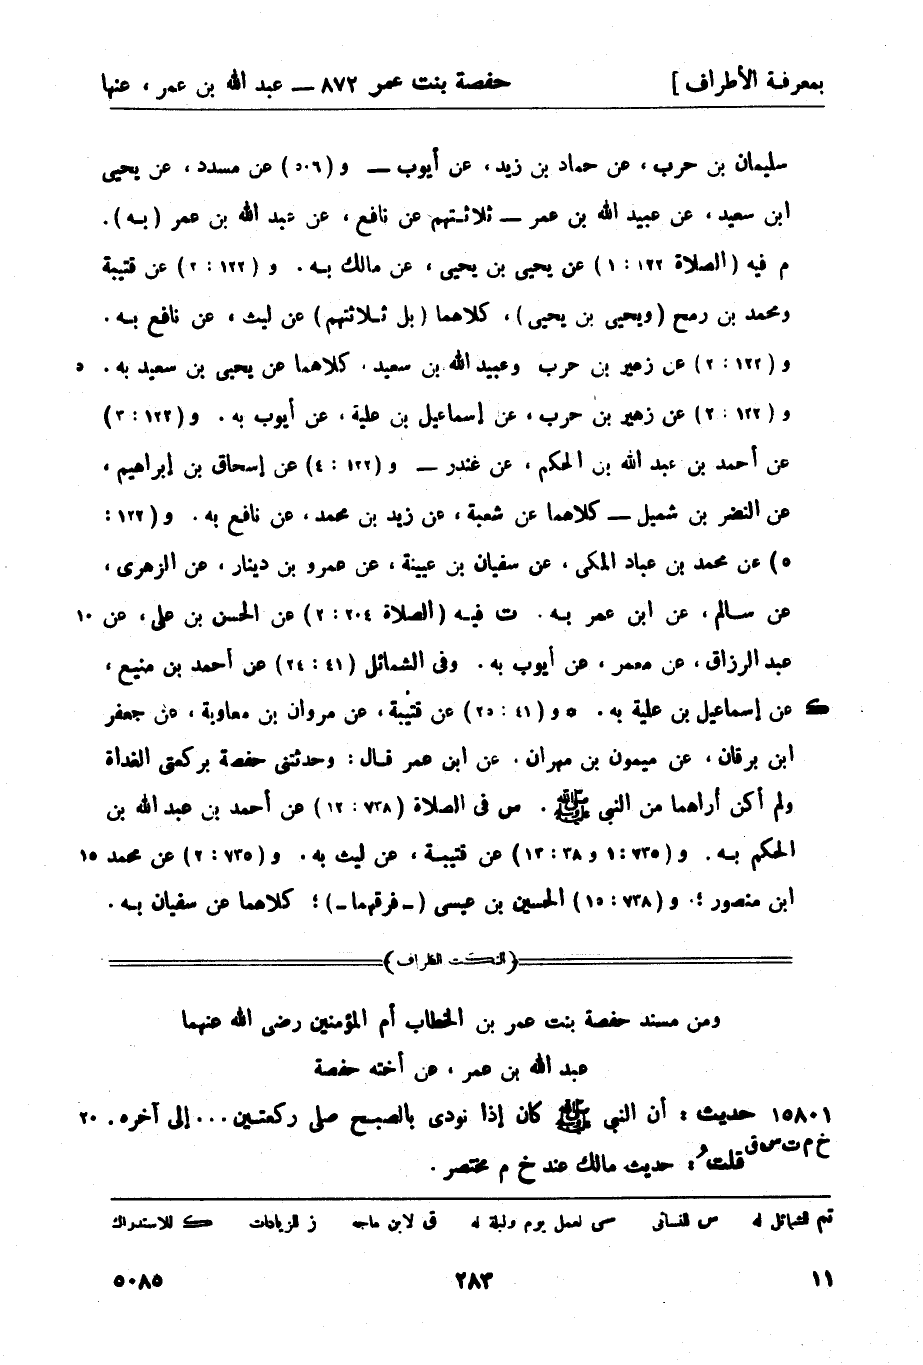 بمعرفة الأطراف ]
حفصة بنت عمر ٨٧٢ — عبد الله بن عمر ، عنها
سليمان بن حرب ، عن حماد بن زيد، عن أيوب — و (٥٠٦) عن مسدد ، عن يحيى
ابن سعيد ، عن عبيد الله بن عمر — ثلاثتهم عن نافع ، عن عبد الله بن عمر (به).
م فيه (الصلاة ١٢٢ : ١) عن يحيى بن يحيى ، عن مالك به . و (١٢٢ : ٢) عن قتيبة
ومحمد بن رمح (ويحيى بن يحيى) ، كلاهما (بل ثلاثتهم) عن ليث ، عن نافع به .
و (١٢٢ : ٢) عن زهير بن حرب وعبيد الله بن سعيد، كلاهما عن يحيى بن سعيد به . ٥
و (١٢٢ : ٢) عن زهير بن حرب ، عن إسماعيل بن علية ، عن أيوب به . و (١٢٢ : ٣)
عن أحمد بن عبد الله بن الحكم ، عن غندر — و (١٢٢ : ٤) عن إسحاق بن إبراهيم ،
عن النضر بن شميل — كلاهما عن شعبة ، عن زيد بن محمد ، عن نافع به . و (١٢٢ :
٥) عن محمد بن عباد المكى ، عن سفيان بن عيينة ، عن عمرو بن دينار ، عن الزهرى ،
عن سالم ، عن ابن عمر به . ت فيه (الصلاة ٢٠٤ : ٢) عن الحسن بن على ، عن ١٠
عبد الرزاق ، عن معمر ، عن أيوب به . وفى الشمائل (٤١ : ٢٤) عن أحمد بن منيع ،
ك عن إسماعيل بن علية به . ٥ و (٤١ : ٢٥) عن قتيبة ، عن مروان بن معاوية ، عن جعفر
ابن برقان ، عن ميمون بن مهران . عن ابن عمر قال : وحدثتنى حفصة بركعتى الغداة
ولم أكن أراهما من النبى ﷺ . س فى الصلاة (٧٣٨ : ١٢) عن أحمد بن عبد الله بن
الحكم به . و (٧٣٥ : ١ و ٣٨ : ١٣) عن قتيبة ، عن ليث به . و (٧٣٥ : ٢) عن محمد ١٥
ابن منصور ؛ . و (٧٣٨ : ١٥) الحسين بن عيسى (-فرقهما-) ؛ كلاهما عن سفيان به .
(النكت الظراف)
ومن مسند حفصة بنت عمر بن الخطاب أم المؤمنين رضى الله عنهما
عبد الله بن عمر ، عن أخته حفصة
١٥٨٠١ حديث : أن النبى ﷺ كان إذا نودى بالصبح صلى ركعتين ... إلى آخره . ٢٠
خ م ت س ق
قلت : حديث مالك عند خ م مختصر .
تم للشمائل له س للنسائى سى لعمل يوم وليلة له ق لابن ماجه ز للزيادات ك للاستدراك
١١ ٢٨٣ ٥٠٨٥